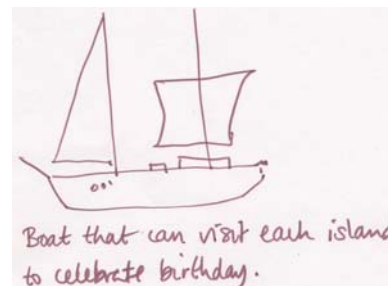 Boat that can visit each island
to celebrate birthday.